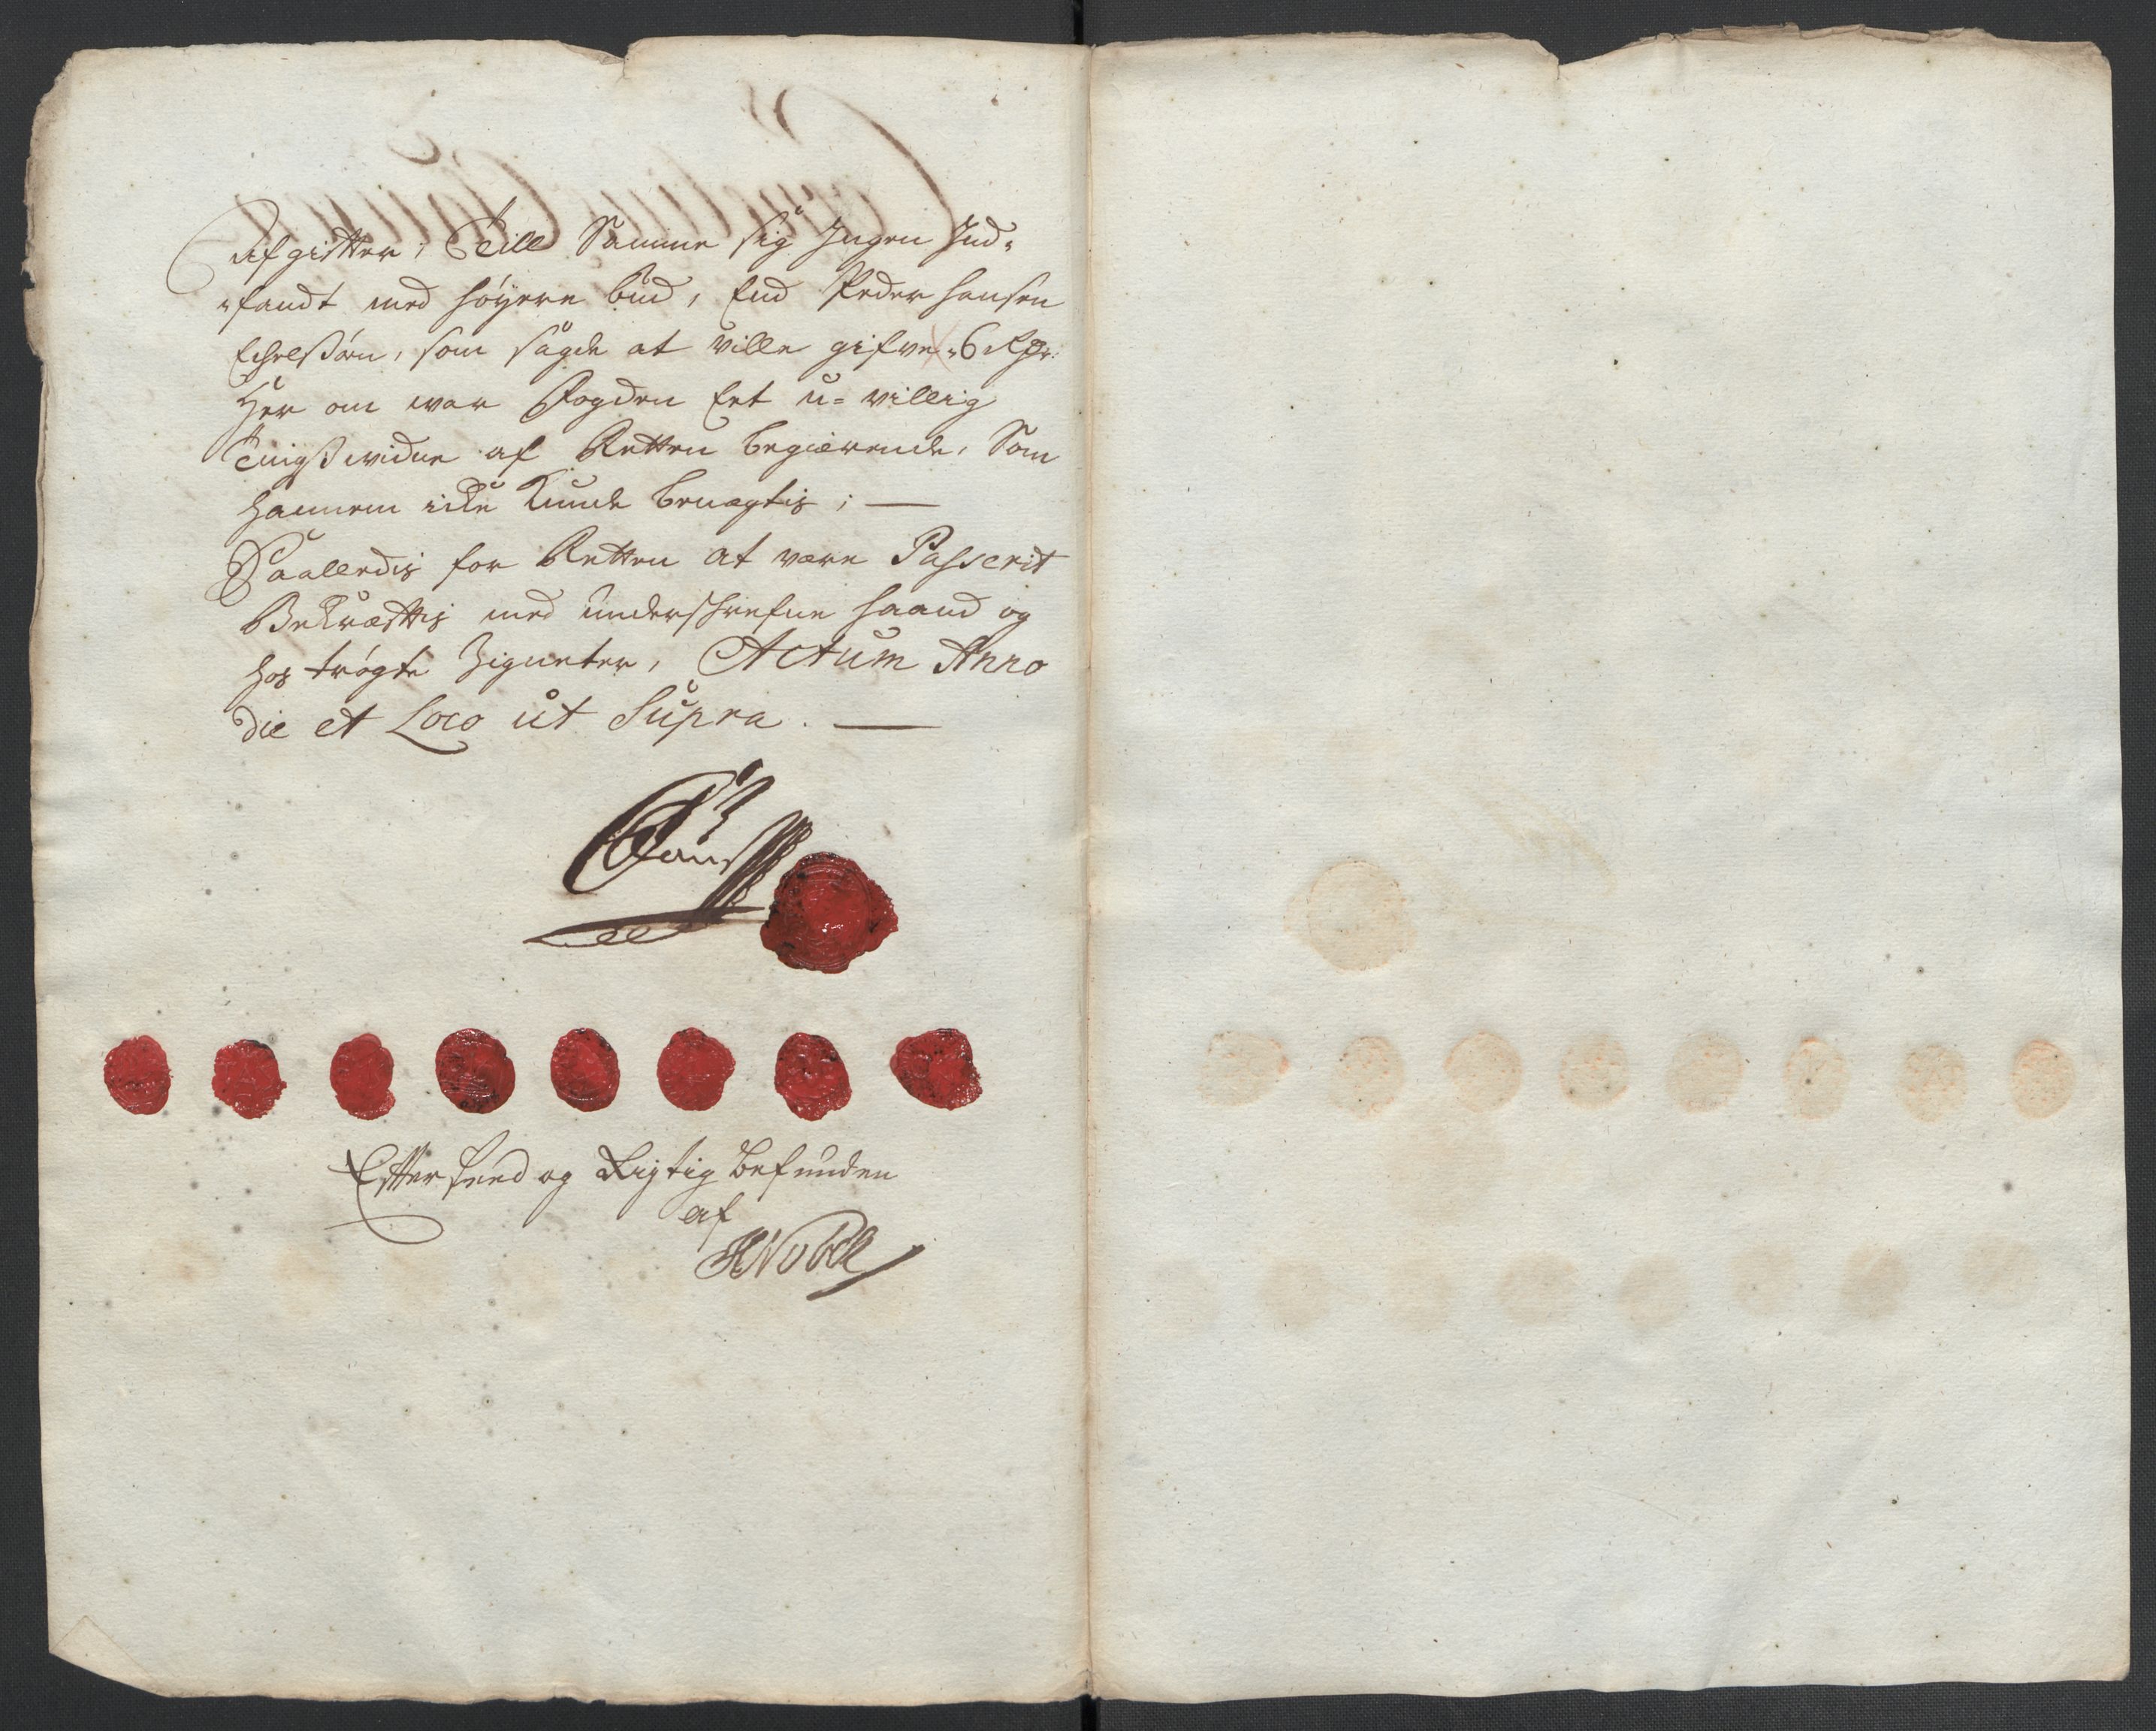 Afgifter, Till Samme sig Ingen Ind-
fandt med høyere bud, End Peder hansen
som sagde at ville gifve 6 Rdr:
Her om war Fogden Eet u-villig
Tingsß widne af Retten begiærende, Som
hannem icke kunde benægtis; —
Saaledis for Retten at være Passerit
Bekræfftis med underschrefne haand og
hos trøgte Zigneter, Actum Anno
die et Loco ut Supra. —
Effterseed og Rigtig befunden
af